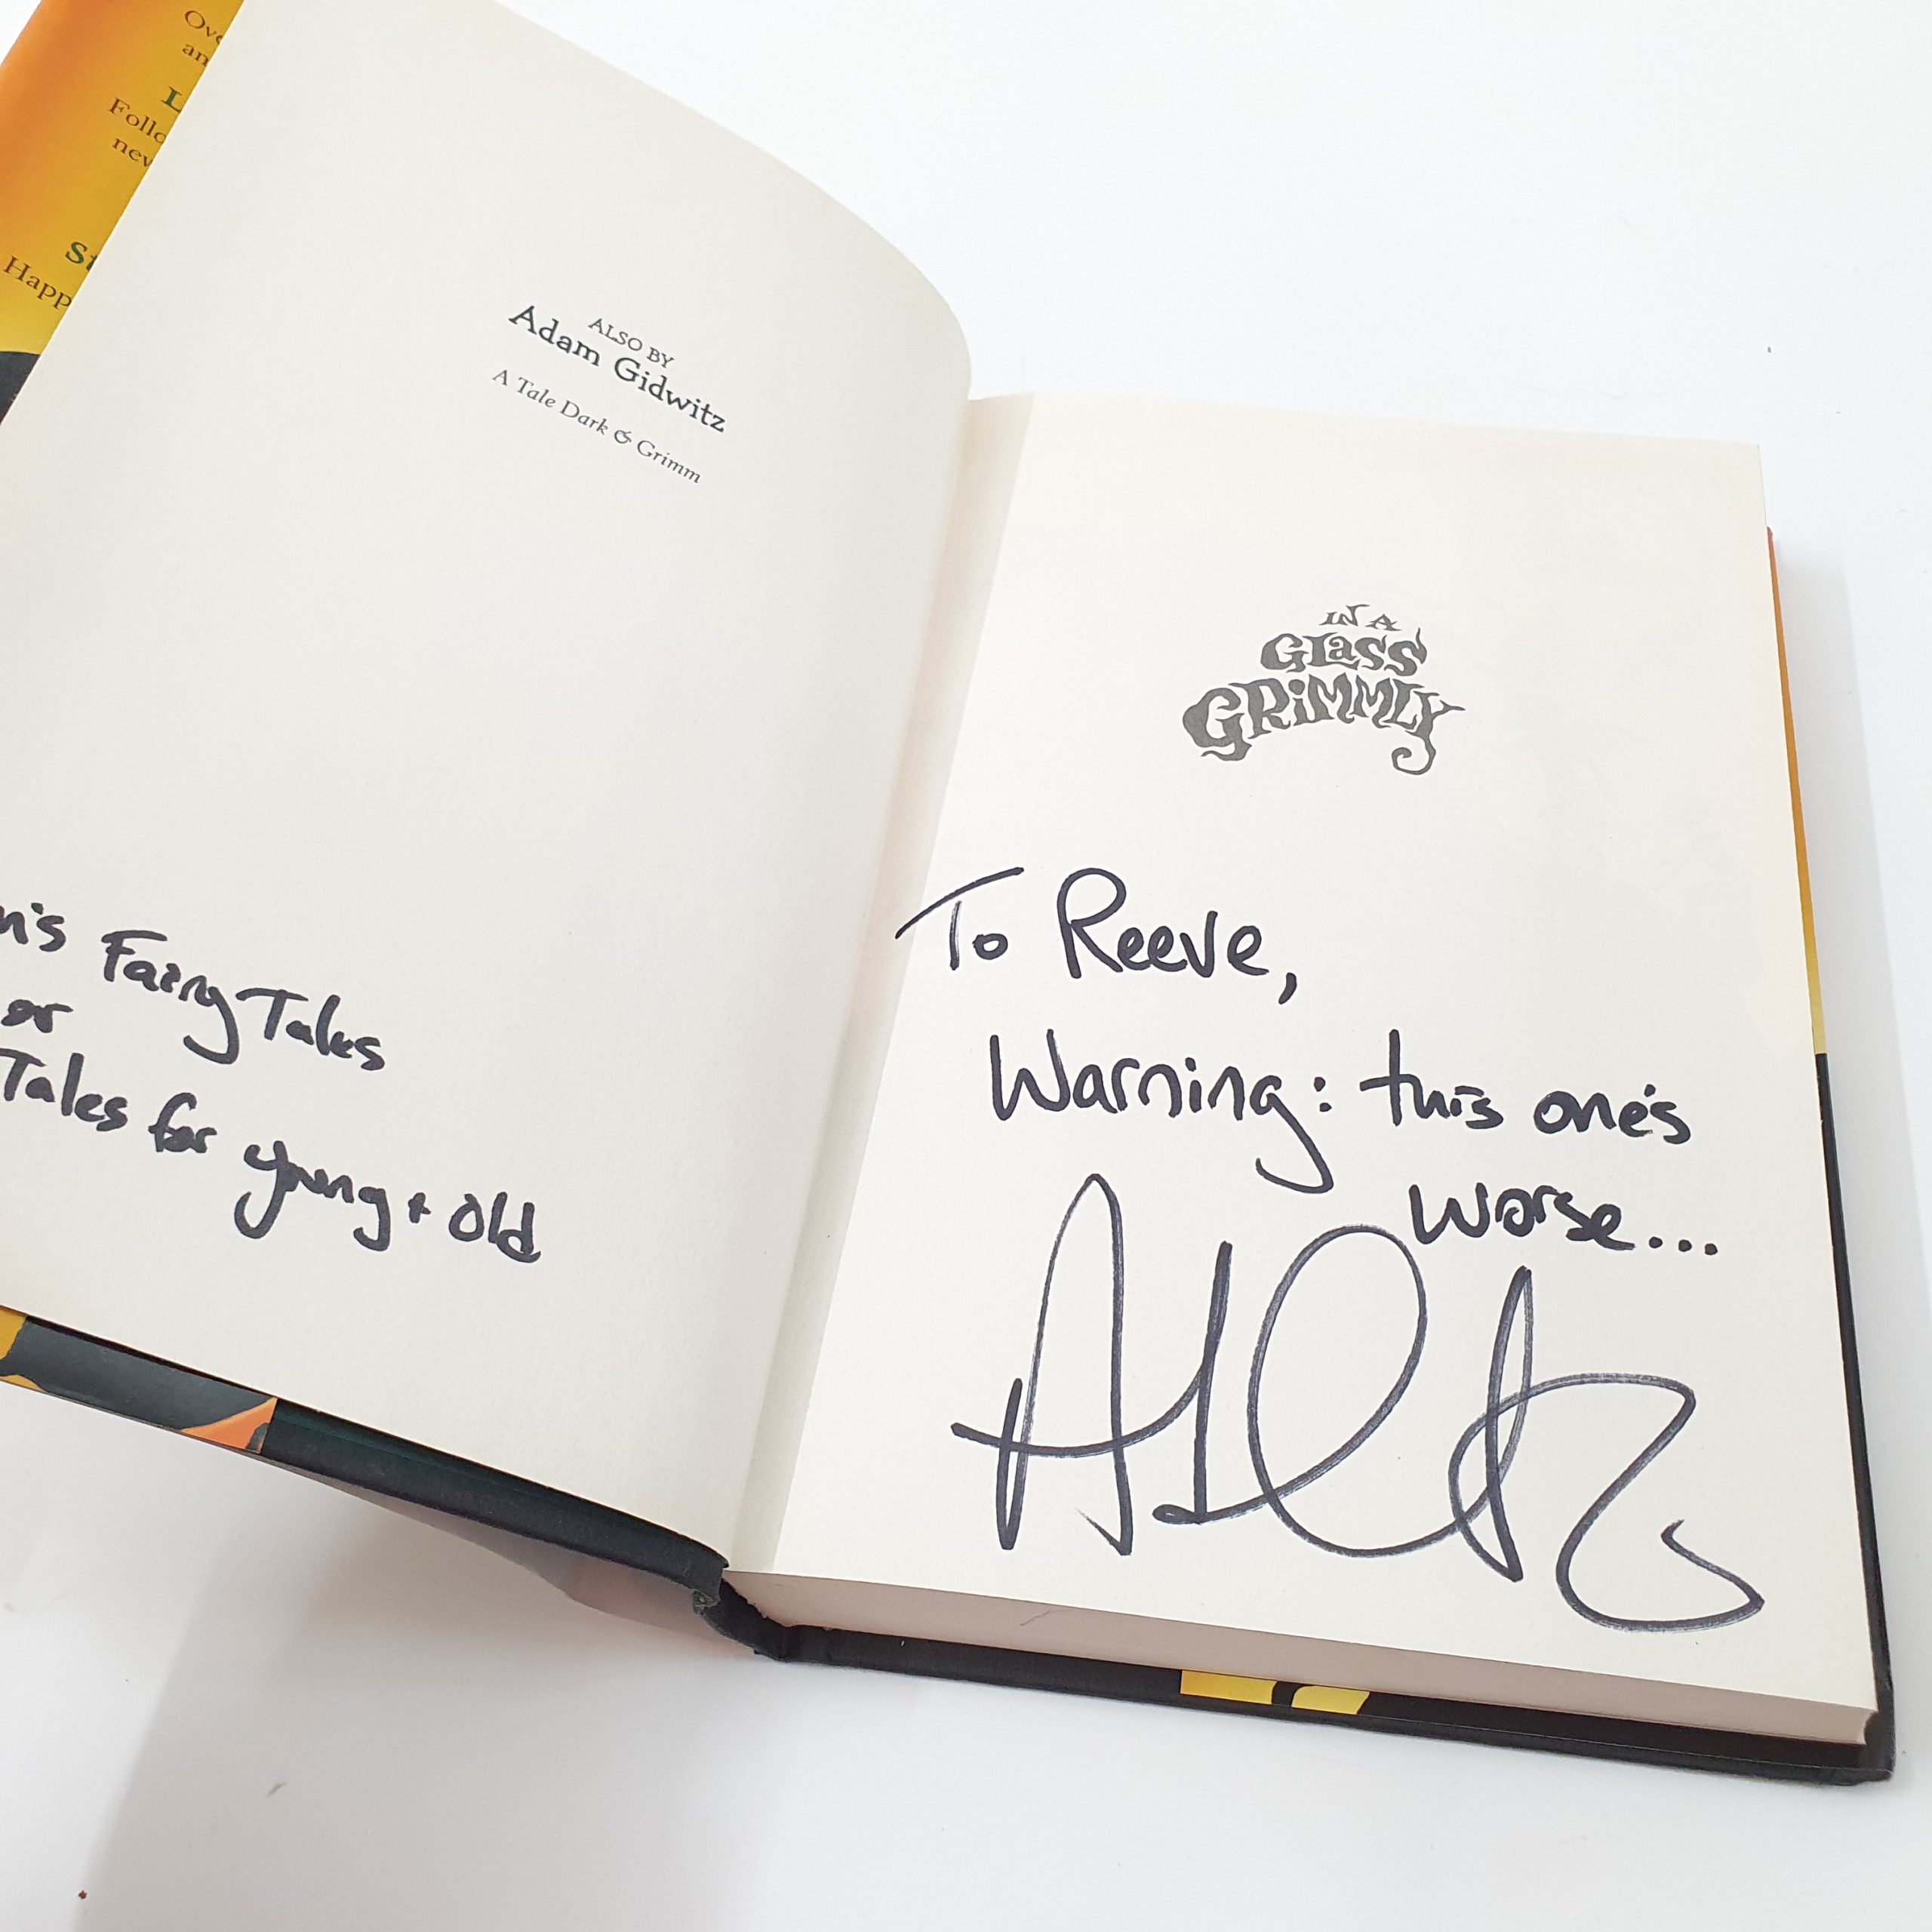 ALSO BY
Adam Gidwitz
A Tale Dark & Grimm
Fairy Tales
or
Tales for young + old
IN A
GLASS
GRIMMLY
To Reeve,
Warning: this one's
worse...